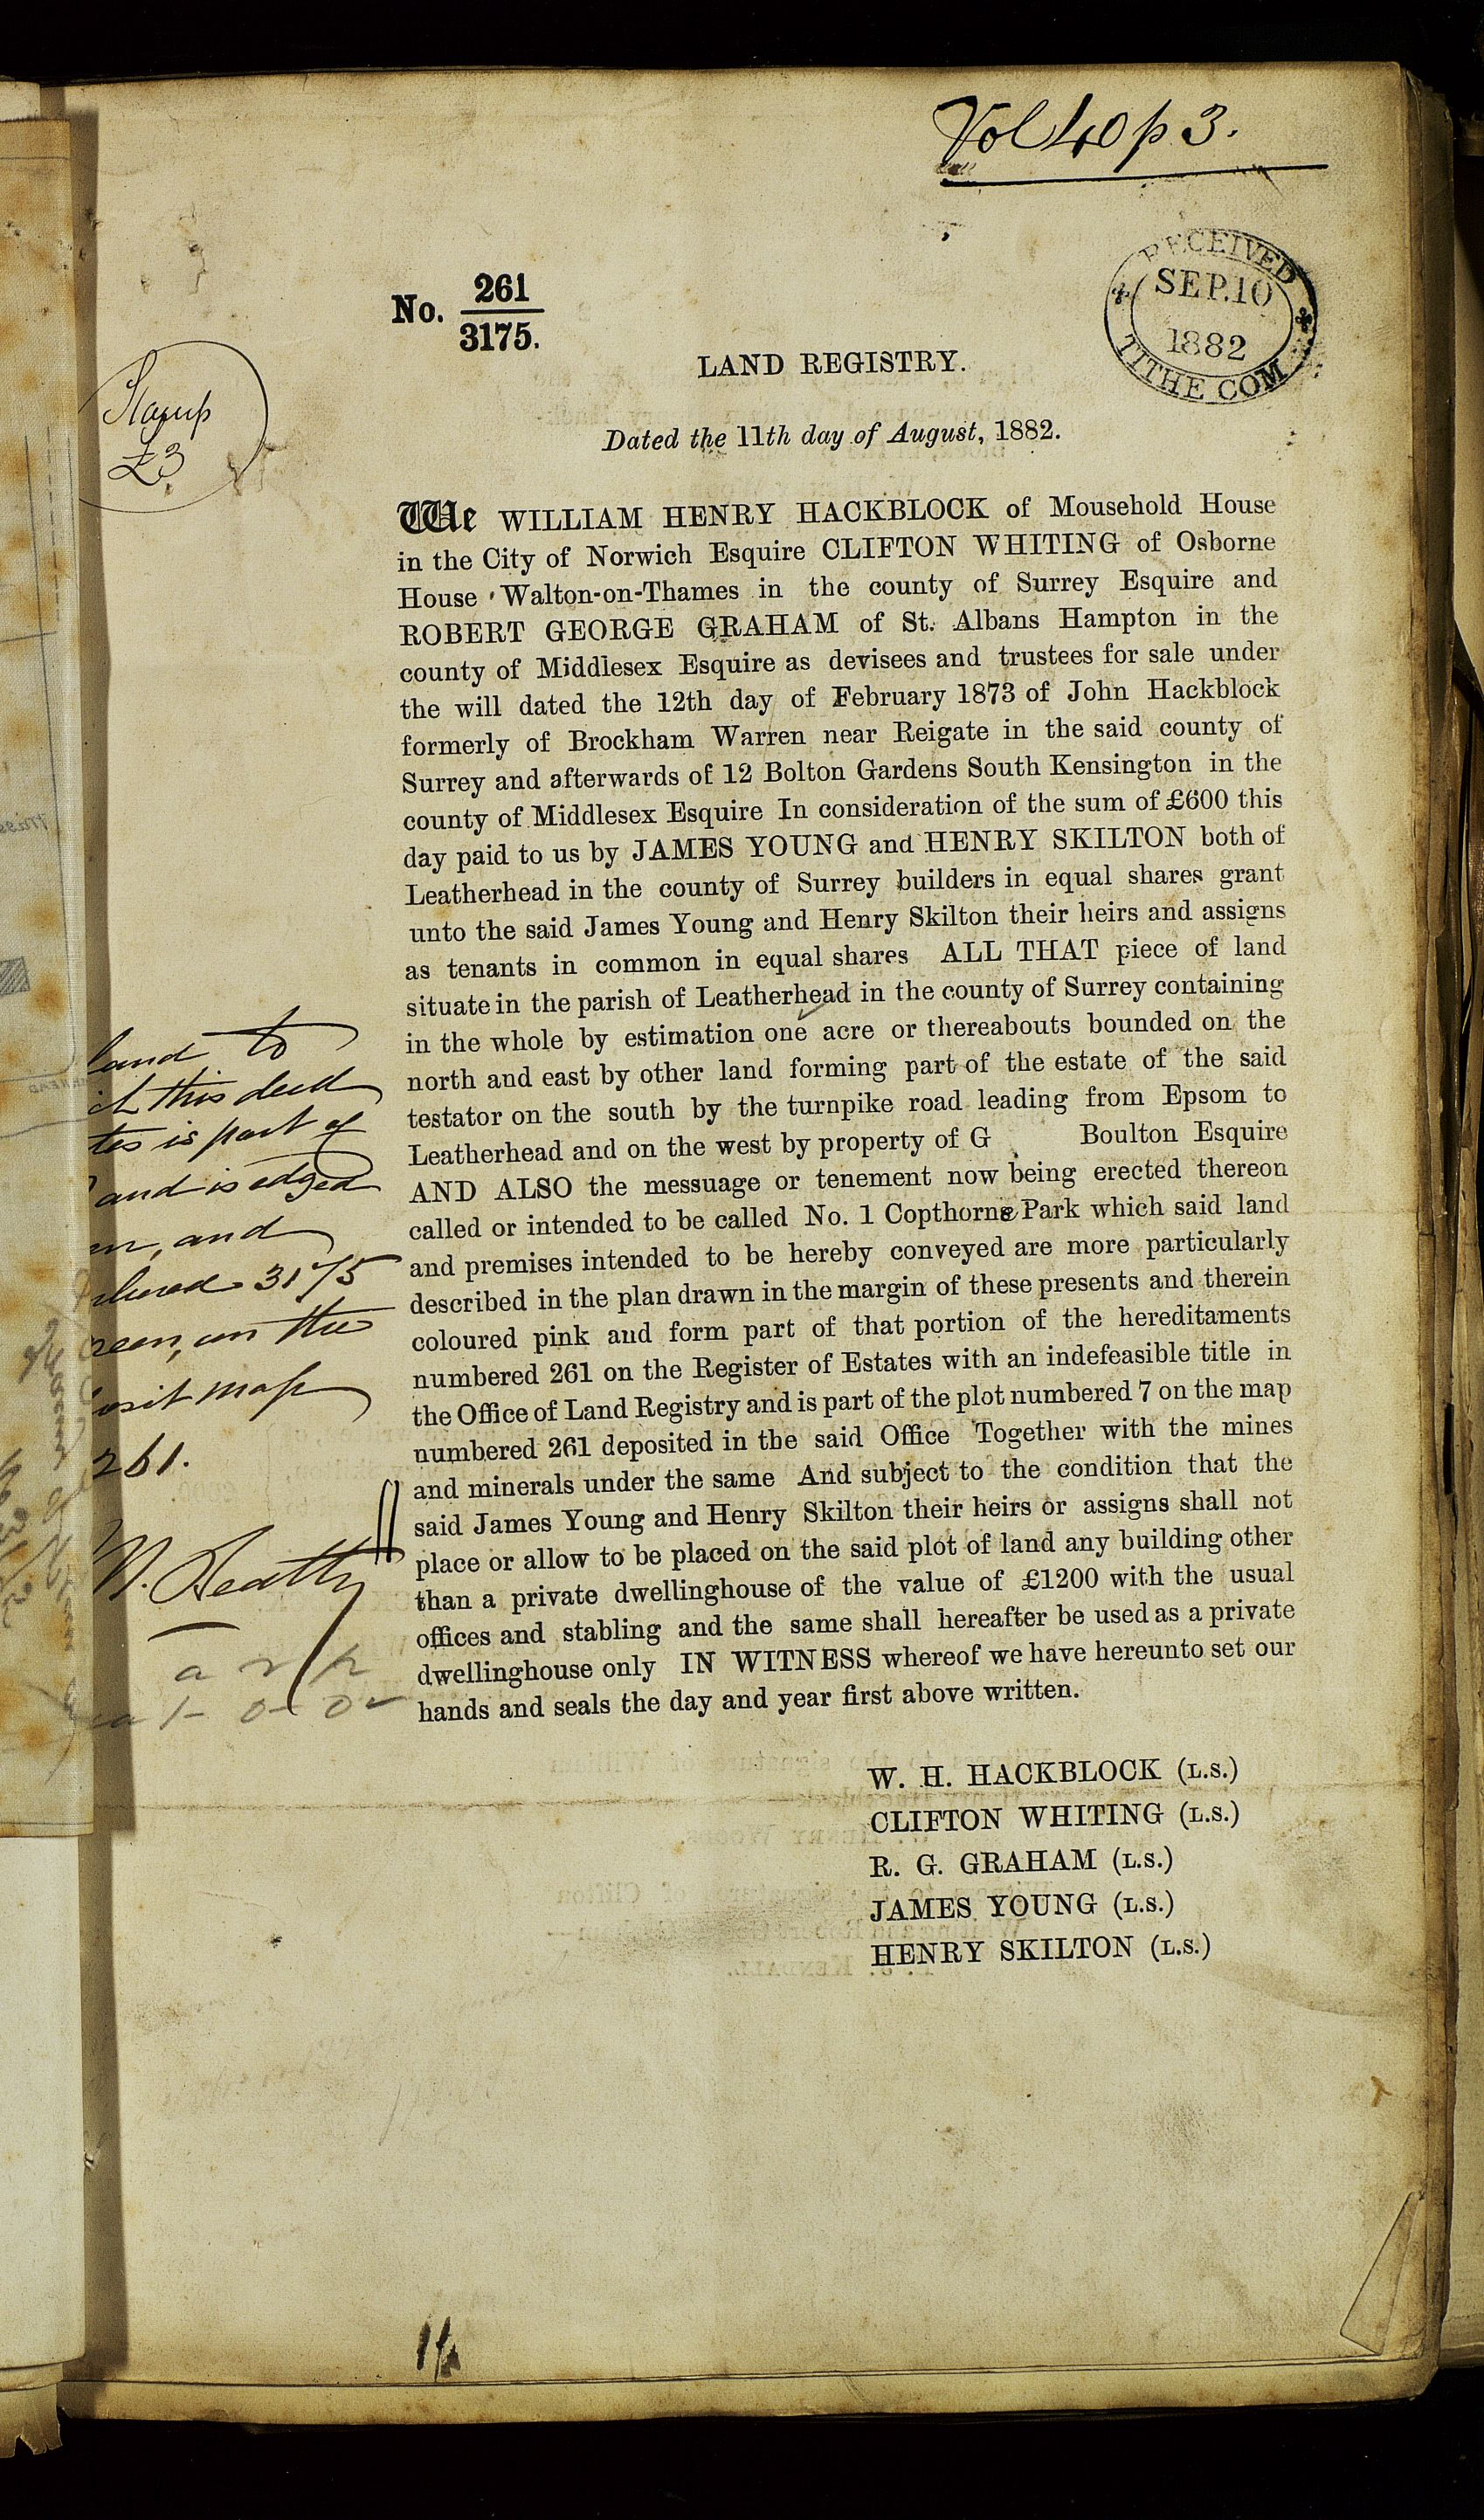 Vol 40 p 3.
RECEIVED
SEP. 10
1882
TITHE COM
No. 261
3175.
LAND REGISTRY.
Stamp
£3
Dated the 11th day of August, 1882.
We WILLIAM HENRY HACKBLOCK of Mousehold House
in the City of Norwich Esquire CLIFTON WHITING of Osborne
House Walton-on-Thames in the county of Surrey Esquire and
ROBERT GEORGE GRAHAM of St. Albans Hampton in the
county of Middlesex Esquire as devisees and trustees for sale under
the will dated the 12th day of February 1873 of John Hackblock
formerly of Brockham Warren near Reigate in the said county of
Surrey and afterwards of 12 Bolton Gardens South Kensington in the
county of Middlesex Esquire In consideration of the sum of £600 this
day paid to us by JAMES YOUNG and HENRY SKILTON both of
Leatherhead in the county of Surrey builders in equal shares grant
unto the said James Young and Henry Skilton their heirs and assigns
as tenants in common in equal shares ALL THAT piece of land
situate in the parish of Leatherhead in the county of Surrey containing
in the whole by estimation one acre or thereabouts bounded on the
north and east by other land forming part of the estate of the said
testator on the south by the turnpike road leading from Epsom to
Leatherhead and on the west by property of G Boulton Esquire
AND ALSO the messuage or tenement now being erected thereon
called or intended to be called No. 1 Copthorne Park which said land
and premises intended to be hereby conveyed are more particularly
described in the plan drawn in the margin of these presents and therein
coloured pink and form part of that portion of the hereditaments
numbered 261 on the Register of Estates with an indefeasible title in
the Office of Land Registry and is part of the plot numbered 7 on the map
numbered 261 deposited in the said Office Together with the mines
and minerals under the same And subject to the condition that the
said James Young and Henry Skilton their heirs or assigns shall not
place or allow to be placed on the said plot of land any building other
than a private dwellinghouse of the value of £1200 with the usual
offices and stabling and the same shall hereafter be used as a private
dwellinghouse only IN WITNESS whereof we have hereunto set our
hands and seals the day and year first above written.
land to
this deed
is part of
and is edged
and
3175
on the
map
261.
a r p
1 - 0 - 0
W. H. HACKBLOCK (L.S.)
CLIFTON WHITING (L.S.)
R. G. GRAHAM (L.S.)
JAMES YOUNG (L.S.)
HENRY SKILTON (L.S.)